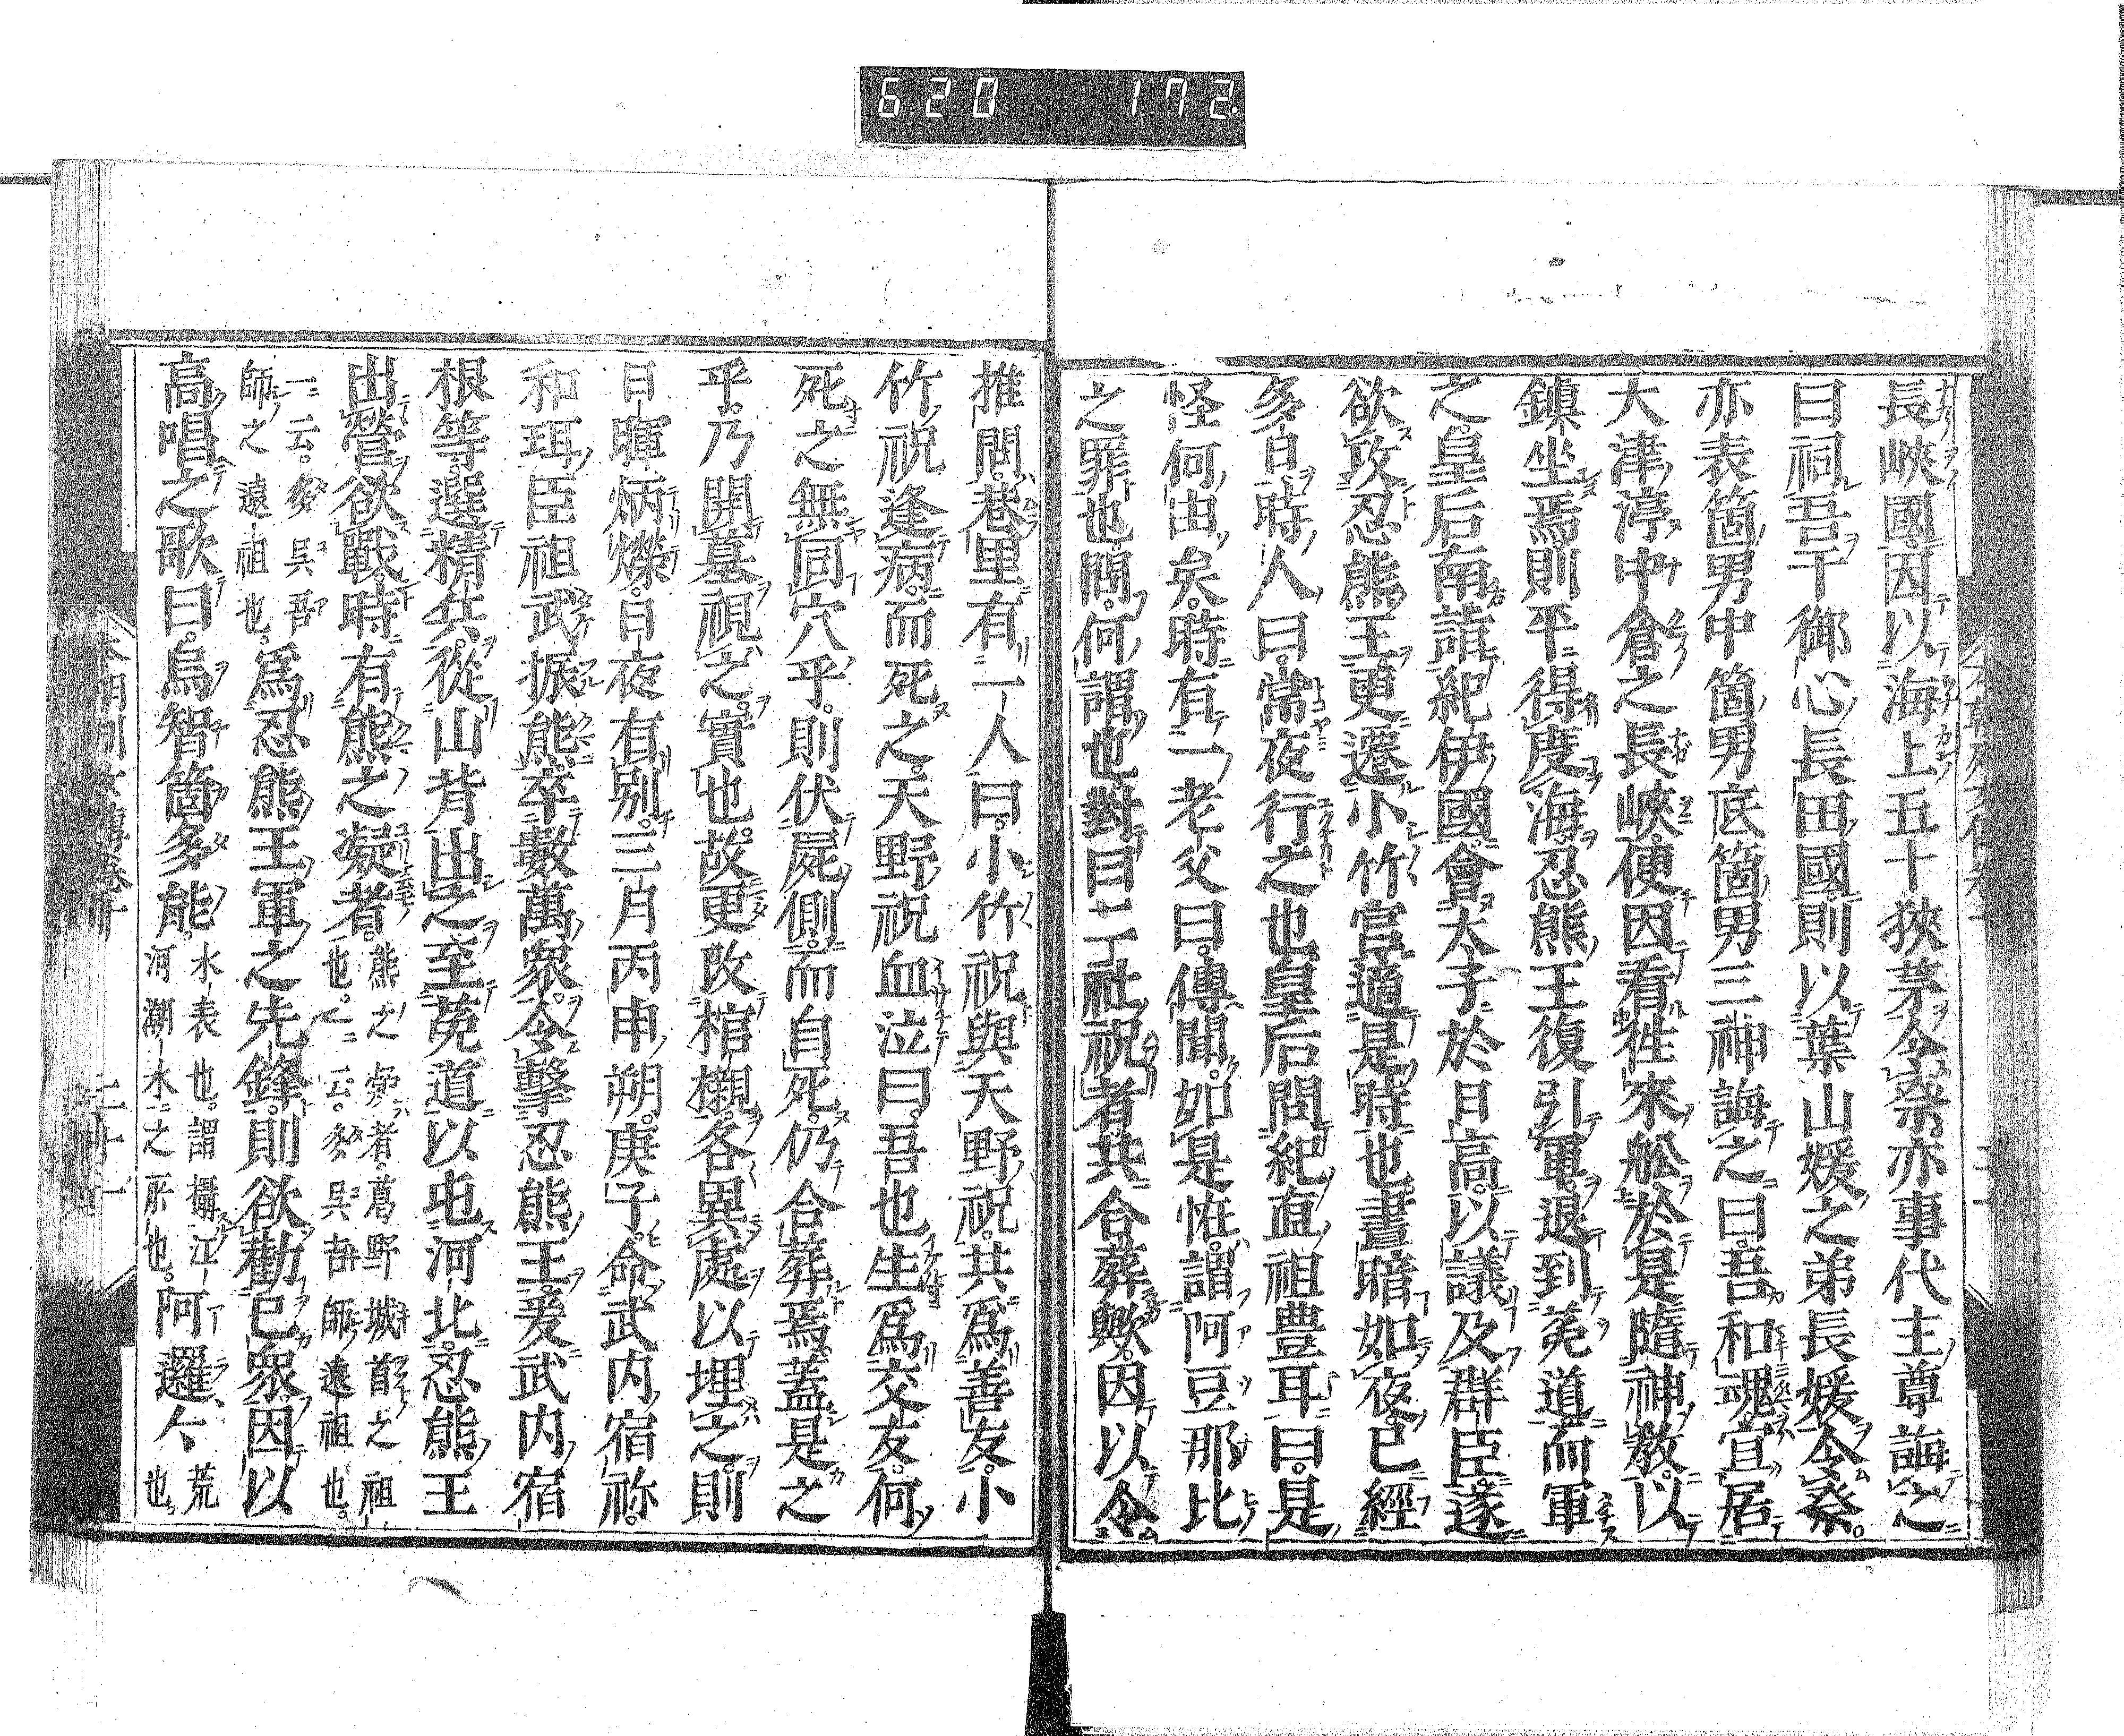 620 172
長峽國因以海上五十狹茅令祭亦事代主尊誨之
曰祠吾于御心長田國則以葉山媛之弟長媛令祭
亦表箇男中箇男底箇男三神誨之曰吾和魂宜居
大津渟中倉之長峽便因看徃來舩於是隨神敎以
鎭坐焉則平得度海忍熊王復引軍退到菟道而軍
之皇后南詣紀伊國會太子於日高以議及群臣遂
欲攻忍熊王更遷小竹宮適是時也晝暗如夜已經
多日時人曰常夜行之也皇后問紀直祖豊耳曰是
怪何由矣時有一老父曰傳聞如是恠謂阿豆那比
之罪也問何謂也對曰二社祝者共合葬歟因以令
推問巷里有一人曰小竹祝與天野祝共爲善友小
竹祝逢病而死之天野祝血泣曰吾也生爲交友何
死之無同穴乎則伏屍側而自死仍合葬焉蓋是之
乎乃開墓視之實也故更改棺櫬各異處以埋之則
日暉炳爃日夜有別三月丙申朔庚子命武内宿祢
和珥臣祖武振熊卒數萬衆令擊忍熊王爰武内宿
根等選精兵從山背出之至菟道以屯河北忍熊王
出營欲戰時有熊之凝者熊之凝者葛野城首之祖也一云多呉吉師遠祖也
一云多呉吾師之遠祖也爲忍熊王軍之先鋒則欲勸己衆因以
高唱之歌曰烏智箇多能水表也謂攝江河瀕水之所也阿邏々荒也